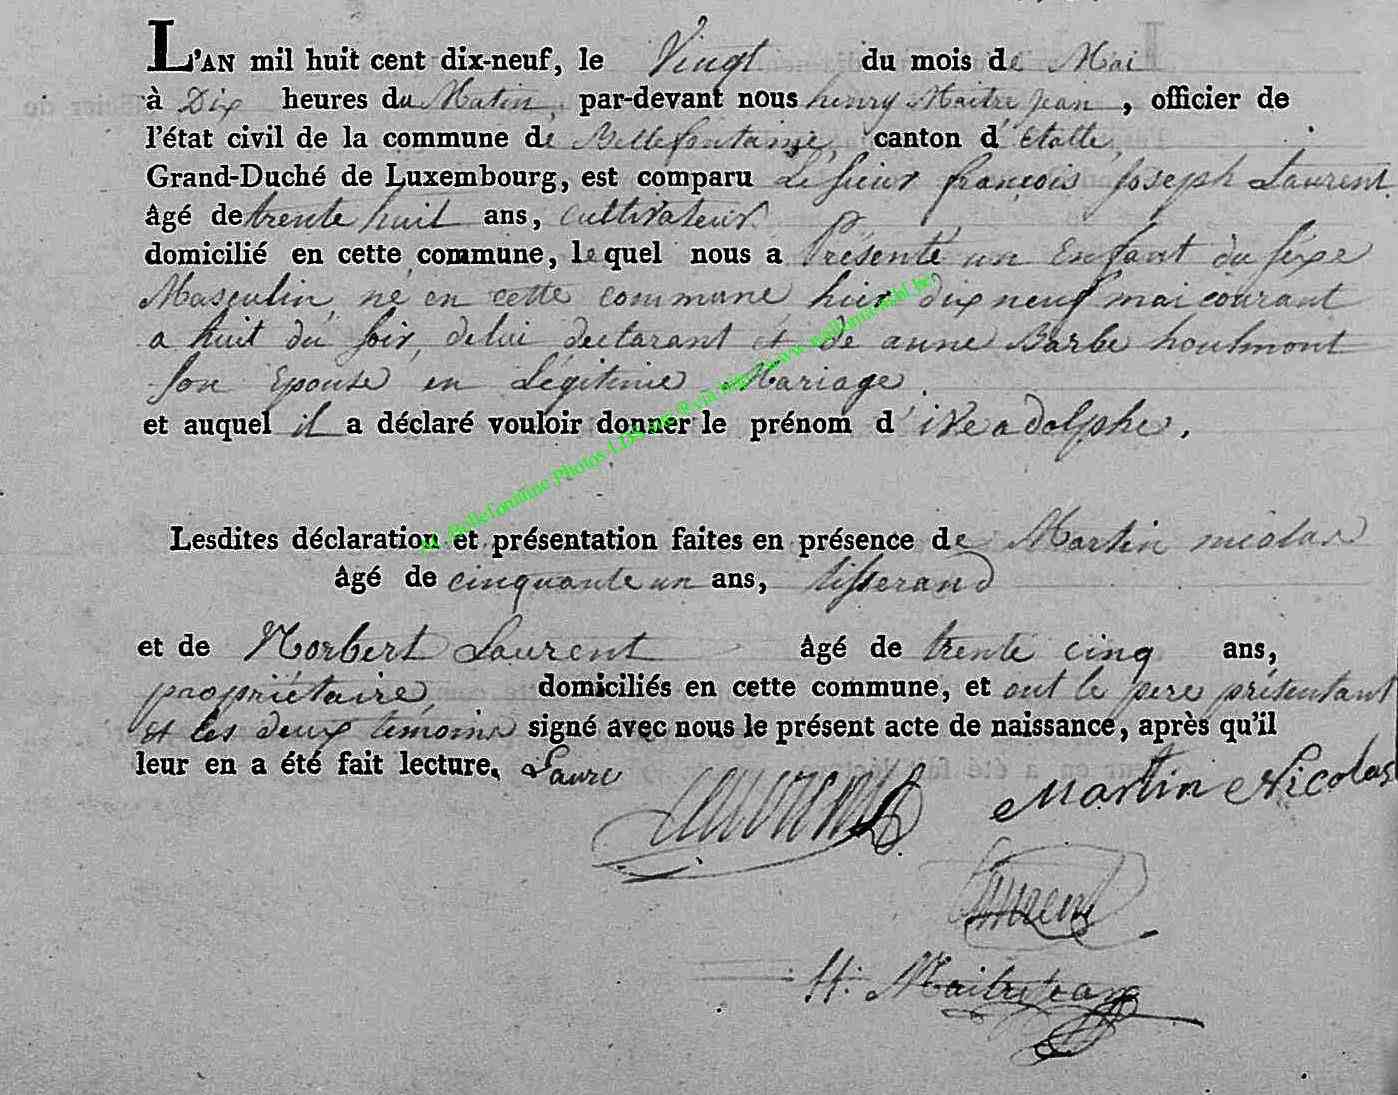 L'AN mil huit cent dix-neuf, le Vingt du mois de Mai
à Dix heures du Matin, par-devant nous henry Maitre jean, officier de
l'état civil de la commune de Bellefontaine, canton d'étalle,
Grand-Duché de Luxembourg, est comparu Le sieur françois Joseph Laurent
âgé de trente huit ans, cultivateur
domicilié en cette commune, lequel nous a Présenté un Enfant du séxe
Masculin, né en cette commune hier dix neuf mai courant
a huit du soir, de lui declarant et de anne Barbe houlmont
son Epouse en Légitime Mariage.
et auquel il a déclaré vouloir donner le prénom d'ive adolphe.
Lesdites déclaration et présentation faites en présence de Martin nicolas
âgé de cinquante un ans, tisserand
et de Norbert Laurent âgé de trente cinq ans,
propriétaire, domiciliés en cette commune, et ont le pere présentant
et les deux temoins signé avec nous le présent acte de naissance, après qu'il
leur en a été fait lecture. Laure
Laurent Martin Nicolas
Laurent
H. Maitrejean